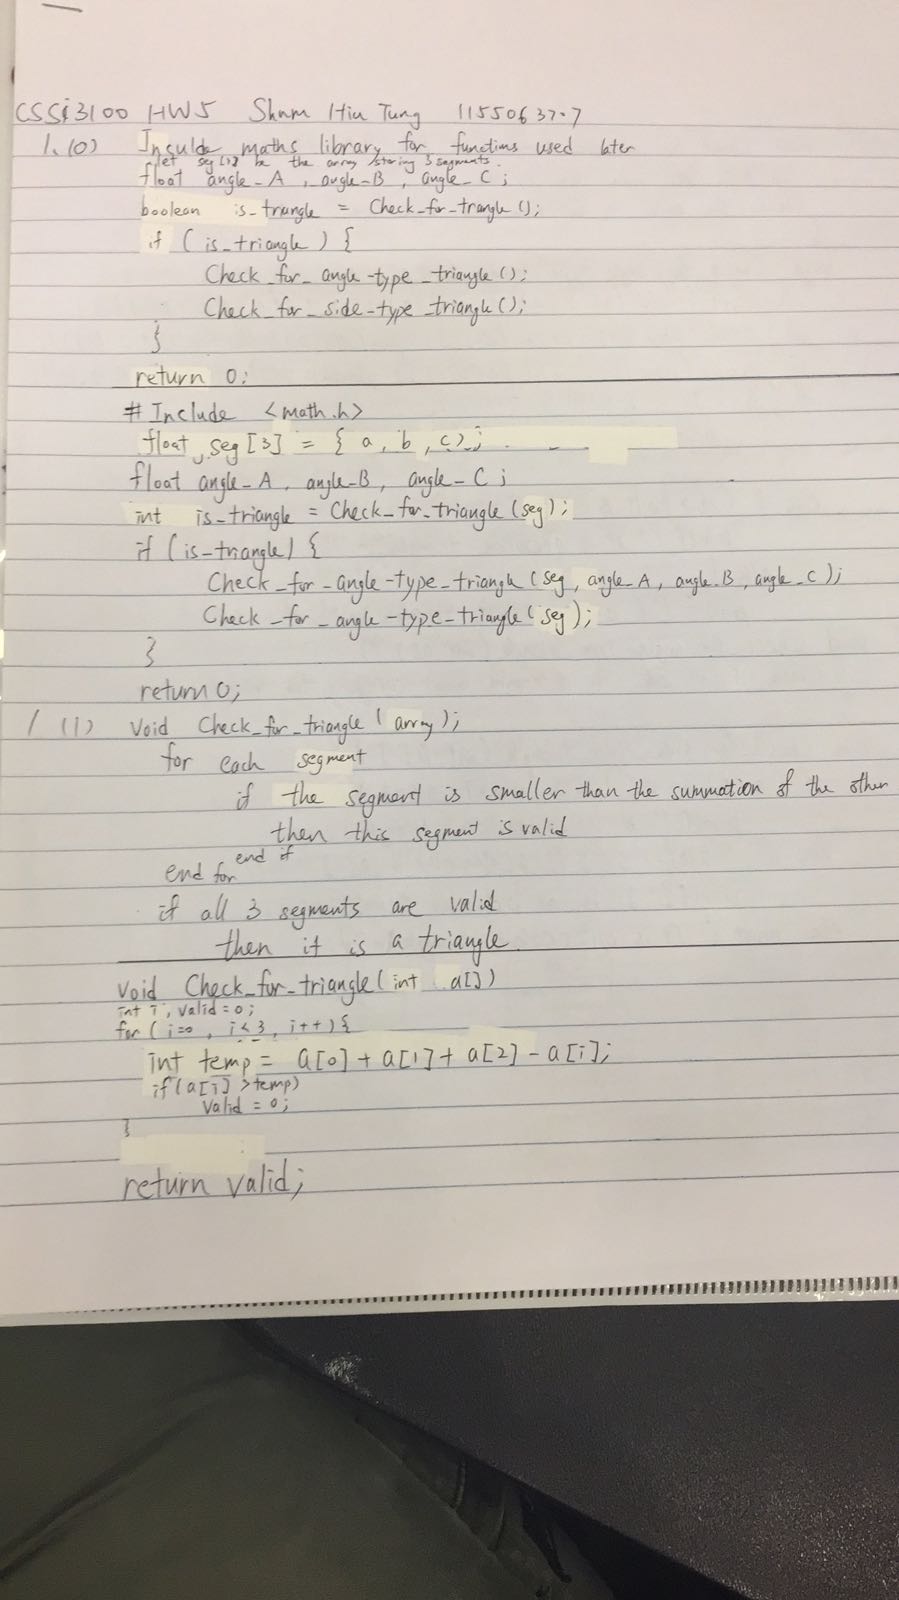 CSSi3100 HW5 Shum Hiu Tung 1155063707
1. (0) Inculde maths library for functions used later
let seg[3] be the array storing 3 segments.
float angle_A, angle_B, angle_C;
boolean is_triangle = Check_for_trangle();
if (is_triangle) {
Check_for_angle-type_triangle();
Check_for_side-type_triangle();
}
return 0;
# Include <math.h>
float seg[3] = { a, b, c};
float angle_A, angle_B, angle_C;
int is_triangle = Check_for_triangle(seg);
if (is_triangle) {
Check_for_angle-type_triangle(seg, angle_A, angle_B, angle_C);
Check_for_angle-type_triangle(seg);
}
return 0;
1 (1) Void Check_for_triangle(array);
for each segment
if the segment is smaller than the summation of the other
then this segment is valid
end if
end for
if all 3 segments are valid
then it is a triangle.
Void Check_for_triangle(int a[])
int i, valid=0;
for (i=0, i<3, i++){
int temp = a[0]+a[1]+a[2]-a[i];
if(a[i]>temp)
Valid = 0;
}
return valid;